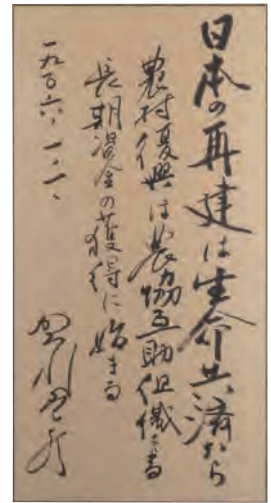 日本の再建は生命共済から
農村復興は農協互助組織
長期資金の獲得に始まる
一九五六、一、一、
賀川豊彦